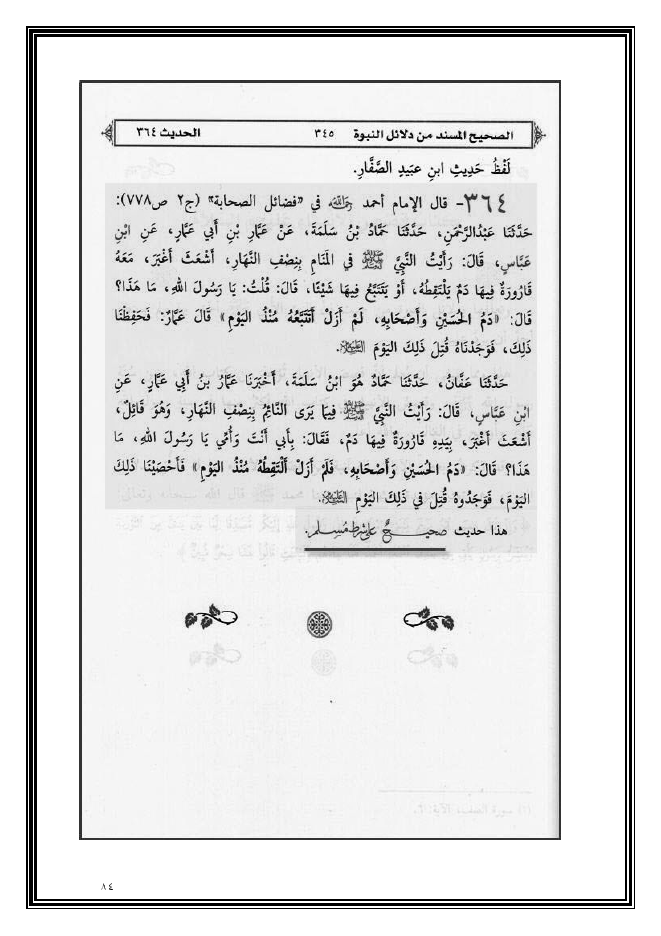 الصحيح المسند من دلائل النبوة ٣٤٥ الحديث ٣٦٤
لَفْظُ حَدِيثِ ابنِ عبَيدِ الصَّفَّارِ.
٣٦٤- قال الإمام أحمد رحمه الله في «فضائل الصحابة» (ج٢ ص٧٧٨):
حَدَّثَنَا عَبْدُالرَّحْمَنِ، حَدَّثَنَا حَمَّادُ بْنُ سَلَمَةَ، عَنْ عَمَّارِ بْنِ أَبِي عَمَّارٍ، عَنِ ابْنِ
عَبَّاسٍ، قَالَ: رَأَيْتُ النَّبِيَّ ﷺ فِي الْمَنَامِ بِنِصْفِ النَّهَارِ، أَشْعَثَ أَغْبَرَ، مَعَهُ
قَارُورَةٌ فِيهَا دَمٌ يَلْتَقِطُهُ، أَوْ يَتَتَبَّعُ فِيهَا شَيْئًا، قَالَ: قُلْتُ: يَا رَسُولَ اللهِ، مَا هَذَا؟
قَالَ: «دَمُ الْحُسَيْنِ وَأَصْحَابِهِ، لَمْ أَزَلْ أَتَتَبَّعُهُ مُنْذُ الْيَوْمِ» قَالَ عَمَّارٌ: فَحَفِظْنَا
ذَلِكَ، فَوَجَدْنَاهُ قُتِلَ ذَلِكَ الْيَوْمَ عليه السلام.
حَدَّثَنَا عَفَّانُ، حَدَّثَنَا حَمَّادٌ هُوَ ابْنُ سَلَمَةَ، أَخْبَرَنَا عَمَّارُ بنُ أَبِي عَمَّارٍ، عَنِ
ابْنِ عَبَّاسٍ، قَالَ: رَأَيْتُ النَّبِيَّ ﷺ فِيمَا يَرَى النَّائِمُ بِنِصْفِ النَّهَارِ، وَهُوَ قَائِلٌ،
أَشْعَثَ أَغْبَرَ، بِيَدِهِ قَارُورَةٌ فِيهَا دَمٌ، فَقَالَ: بِأَبِي أَنْتَ وَأُمِّي يَا رَسُولَ اللهِ، مَا
هَذَا؟ قَالَ: «دَمُ الْحُسَيْنِ وَأَصْحَابِهِ، فَلَمْ أَزَلْ أَلْتَقِطُهُ مُنْذُ الْيَوْمِ» فَأَحْصَيْنَا ذَلِكَ
الْيَوْمَ، فَوَجَدُوهُ قُتِلَ فِي ذَلِكَ الْيَوْمِ عليه السلام.
هذا حديث صحيحٌ على شرط مُسلم.
٨٤